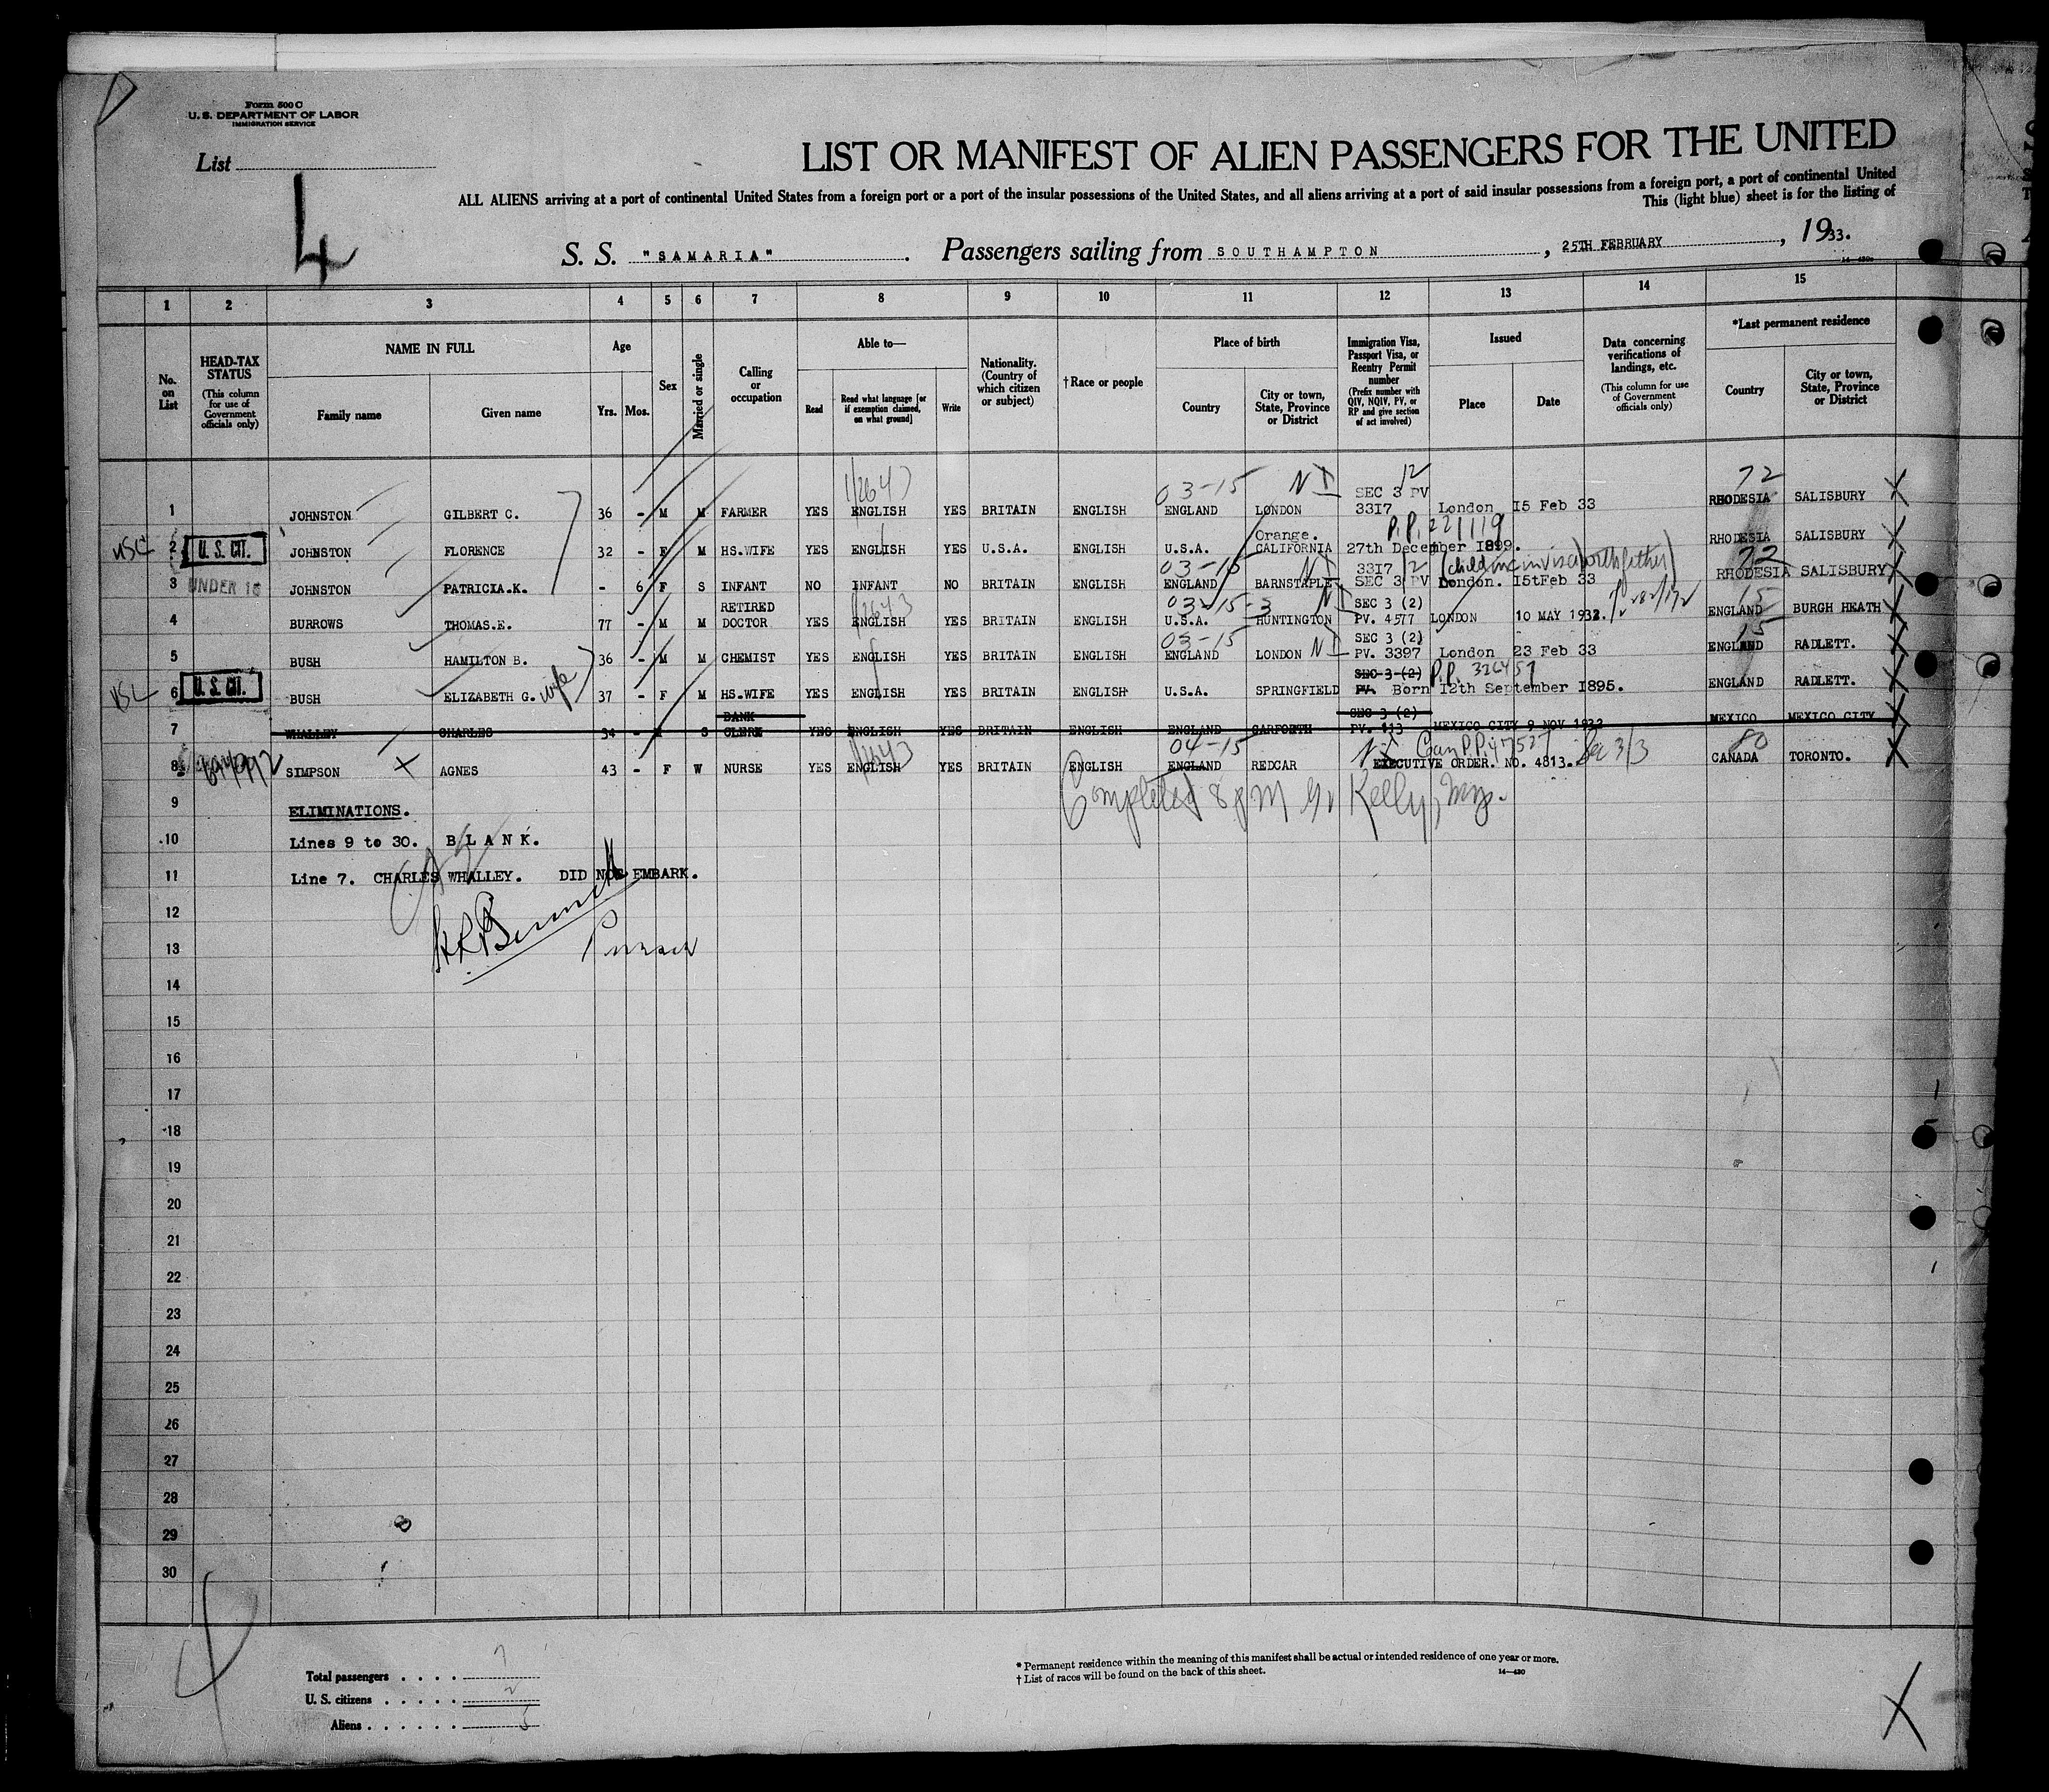 Form 500 C
U. S. DEPARTMENT OF LABOR
IMMIGRATION SERVICE
List
4
LIST OR MANIFEST OF ALIEN PASSENGERS FOR THE UNITED
ALL ALIENS arriving at a port of continental United States from a foreign port or a port of the insular possessions of the United States, and all aliens arriving at a port of said insular possessions from a foreign port, a port of continental United
This (light blue) sheet is for the listing of
S. S. "SAMARIA". Passengers sailing from SOUTHAMPTON, 25TH FEBRUARY, 1933.
1 2 3 4 5 6 7 8 9 10 11 12 13 14 15
No. on List
HEAD-TAX STATUS (This column for use of Government officials only)
NAME IN FULL
Family name Given name
Age
Yrs. Mos.
Sex
Married or single
Calling or occupation
Able to—
Read
Read what language [or if exemption claimed, on what ground]
Write
Nationality. (Country of which citizen or subject)
† Race or people
Place of birth
Country
City or town, State, Province or District
Immigration Visa, Passport Visa, or Reentry Permit number (Prefix number with QIV, NQIV, PV, or RP and give section of act involved)
Issued
Place Date
Data concerning verifications of landings, etc. (This column for use of Government officials only)
*Last permanent residence
Country
City or town, State, Province or District
03-15 12 72
1 JOHNSTON GILBERT C. 36 - M M FARMER YES ENGLISH YES BRITAIN ENGLISH ENGLAND LONDON SEC 3 PV 3317 London 15 Feb 33 RHODESIA SALISBURY
P.P. 221119
USC 2 U.S. CIT. JOHNSTON FLORENCE 32 - F M HS.WIFE YES ENGLISH YES U.S.A. ENGLISH U.S.A. Orange. CALIFORNIA 27th December 1899. RHODESIA SALISBURY
03-15 72
3 UNDER 16 JOHNSTON PATRICIA.K. - 6 F S INFANT NO INFANT NO BRITAIN ENGLISH ENGLAND BARNSTAPLE 3317 SEC 3 PV London. 15tFeb 33 RHODESIA SALISBURY
4 BURROWS THOMAS.E. 77 - M M RETIRED DOCTOR YES ENGLISH YES BRITAIN ENGLISH U.S.A. HUNTINGTON SEC 3 (2) PV. 4577 LONDON 10 MAY 1932. ENGLAND BURGH HEATH
03-15 15
5 BUSH HAMILTON B. 36 - M M CHEMIST YES ENGLISH YES BRITAIN ENGLISH ENGLAND LONDON SEC 3 (2) PV. 3397 London 23 Feb 33 ENGLAND RADLETT.
6 U.S. CIT. BUSH ELIZABETH G. wife 37 - F M HS.WIFE YES ENGLISH YES BRITAIN ENGLISH U.S.A. SPRINGFIELD SEC 3 (2) PV. Born 12th September 1895. ENGLAND RADLETT.
7 WHALLEY CHARLES 34 - S BANK CLERK YES ENGLISH YES BRITAIN ENGLISH ENGLAND GARFORTH SEC 3 (2) PV. 113 MEXICO CITY 9 NOV 1932 MEXICO MEXICO CITY
04-15 80
8 SIMPSON AGNES 43 - F W NURSE YES ENGLISH YES BRITAIN ENGLISH ENGLAND REDCAR EXECUTIVE ORDER. NO. 4813. CANADA TORONTO.
Completed 8 PM Kelly, Insp.
9 ELIMINATIONS.
10 Lines 9 to 30. BLANK.
11 Line 7. CHARLES WHALLEY. DID NOT EMBARK.
12
13 Purser
14
15
16
17
18
19
20
21
22
23
24
25
26
27
28
29
30
Total passengers . . . . 7
U. S. citizens . . . . . 2
Aliens . . . . . . 5
* Permanent residence within the meaning of this manifest shall be actual or intended residence of one year or more.
† List of races will be found on the back of this sheet.
14—430